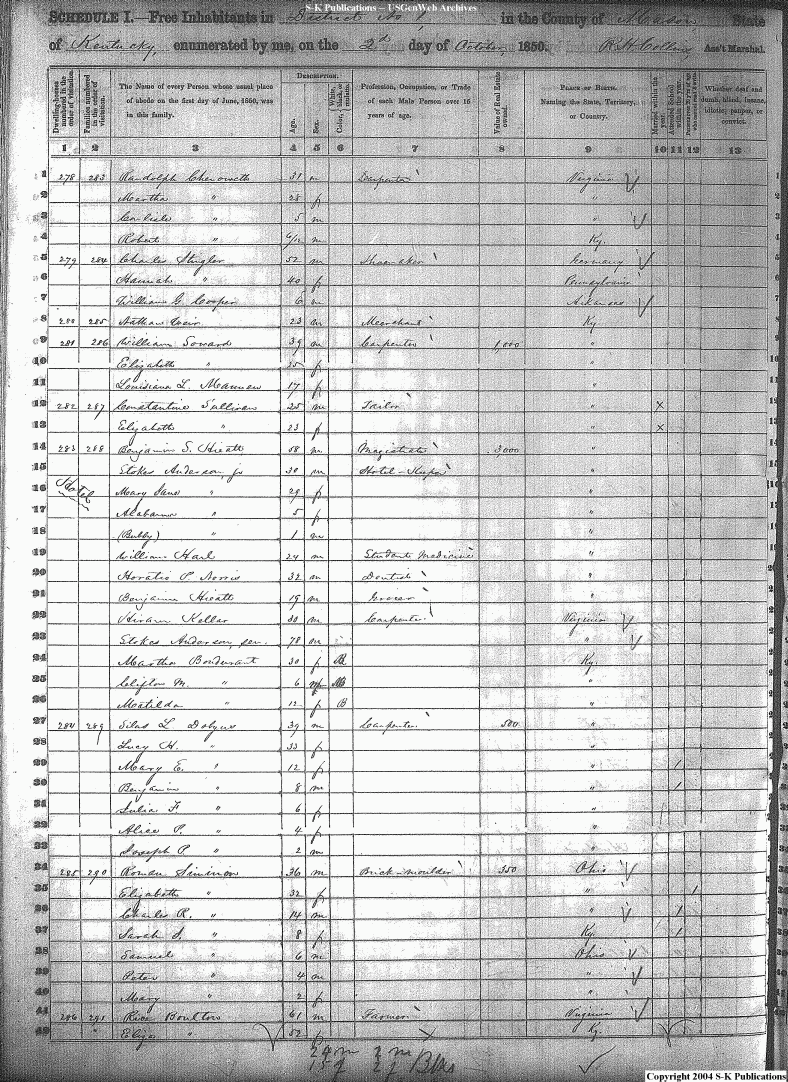 S-K Publications – USGenWeb Archives
SCHEDULE I.—Free Inhabitants in District No. 1 in the County of Mason State
of Kentucky enumerated by me, on the 2d day of October, 1850. R. H. Collins Ass't Marshal.
Dwelling-houses numbered in the order of visitation.
Families numbered in the order of visitation.
The Name of every Person whose usual place of abode on the first day of June, 1850, was in this family.
Description.
Age.
Sex.
Color, White, black, or mulatto.
Profession, Occupation, or Trade of each Male Person over 15 years of age.
Value of Real Estate owned.
Place of Birth. Naming the State, Territory, or Country.
Married within the year.
Attended School within the year.
Whether deaf and dumb, blind, insane, idiotic, pauper, or convict.
1 2 3 4 5 6 7 8 9 10 11 12 13
1 278 283 Randolph Chenoweth 31 m Carpenter Virginia
2 Martha " 28 f "
3 Carlisle " 5 m "
4 Robert " 6/12 m Ky.
5 279 284 Charles Stingler 52 m Shoemaker Germany
6 Hannah " 40 f Pennsylvania
7 William G. Cooper 6 m Arkansas
8 280 285 Nathan Weir 23 m Merchant Ky
9 281 286 William Soward 39 m Carpenter 1,000 "
10 Elizabeth " 25 f "
11 Louisiana L. 17 f "
12 282 287 Constantine Sullivan 25 m Tailor " x
13 Elizabeth " 23 f " x
14 283 288 Benjamin S. Hieatt 58 m Magistrate 3,000 "
15 Stokes Anderson, jr 30 m Hotel-Keeper "
16 Hotel Mary Jane " 29 f "
17 Alabama " 5 f "
18 (Bubby) " 1 m "
19 William Harl 24 m Student Medicine "
20 Horatio P. Norris 32 m Dentist "
21 Benjamin Hieatt 19 m Grocer "
22 Hiram Kellar 30 m Carpenter Virginia
23 Stokes Anderson, sen. 78 m "
24 Martha Bondurant 30 f B Ky.
25 Clifton M. " 6 m "
26 Matilda " 12 f B "
27 284 289 Silas L. Dobyns 39 m Carpenter 500 "
28 Lucy H. " 33 f "
29 Mary E. " 12 f " 1
30 Benjamin " 8 m " 1
31 Julia F. " 6 f "
32 Alice P. " 4 f "
33 Joseph P " 2 m "
34 285 290 Roman Simmon 36 m Brick-moulder 350 Ohio
35 Elizabeth " 32 f " 1
36 Charles R. " 14 m " 1
37 Sarah J. " 8 f Ky. 1
38 Samuel " 6 m Ohio
39 Peter " 4 m "
40 Mary " 2 f "
41 286 291 Rice Boulton 61 m Farmer Virginia
42 " Eliza " 52 f Ky.
24 m 2 m
15 f 2 f Blks
Copyright 2004 S-K Publications